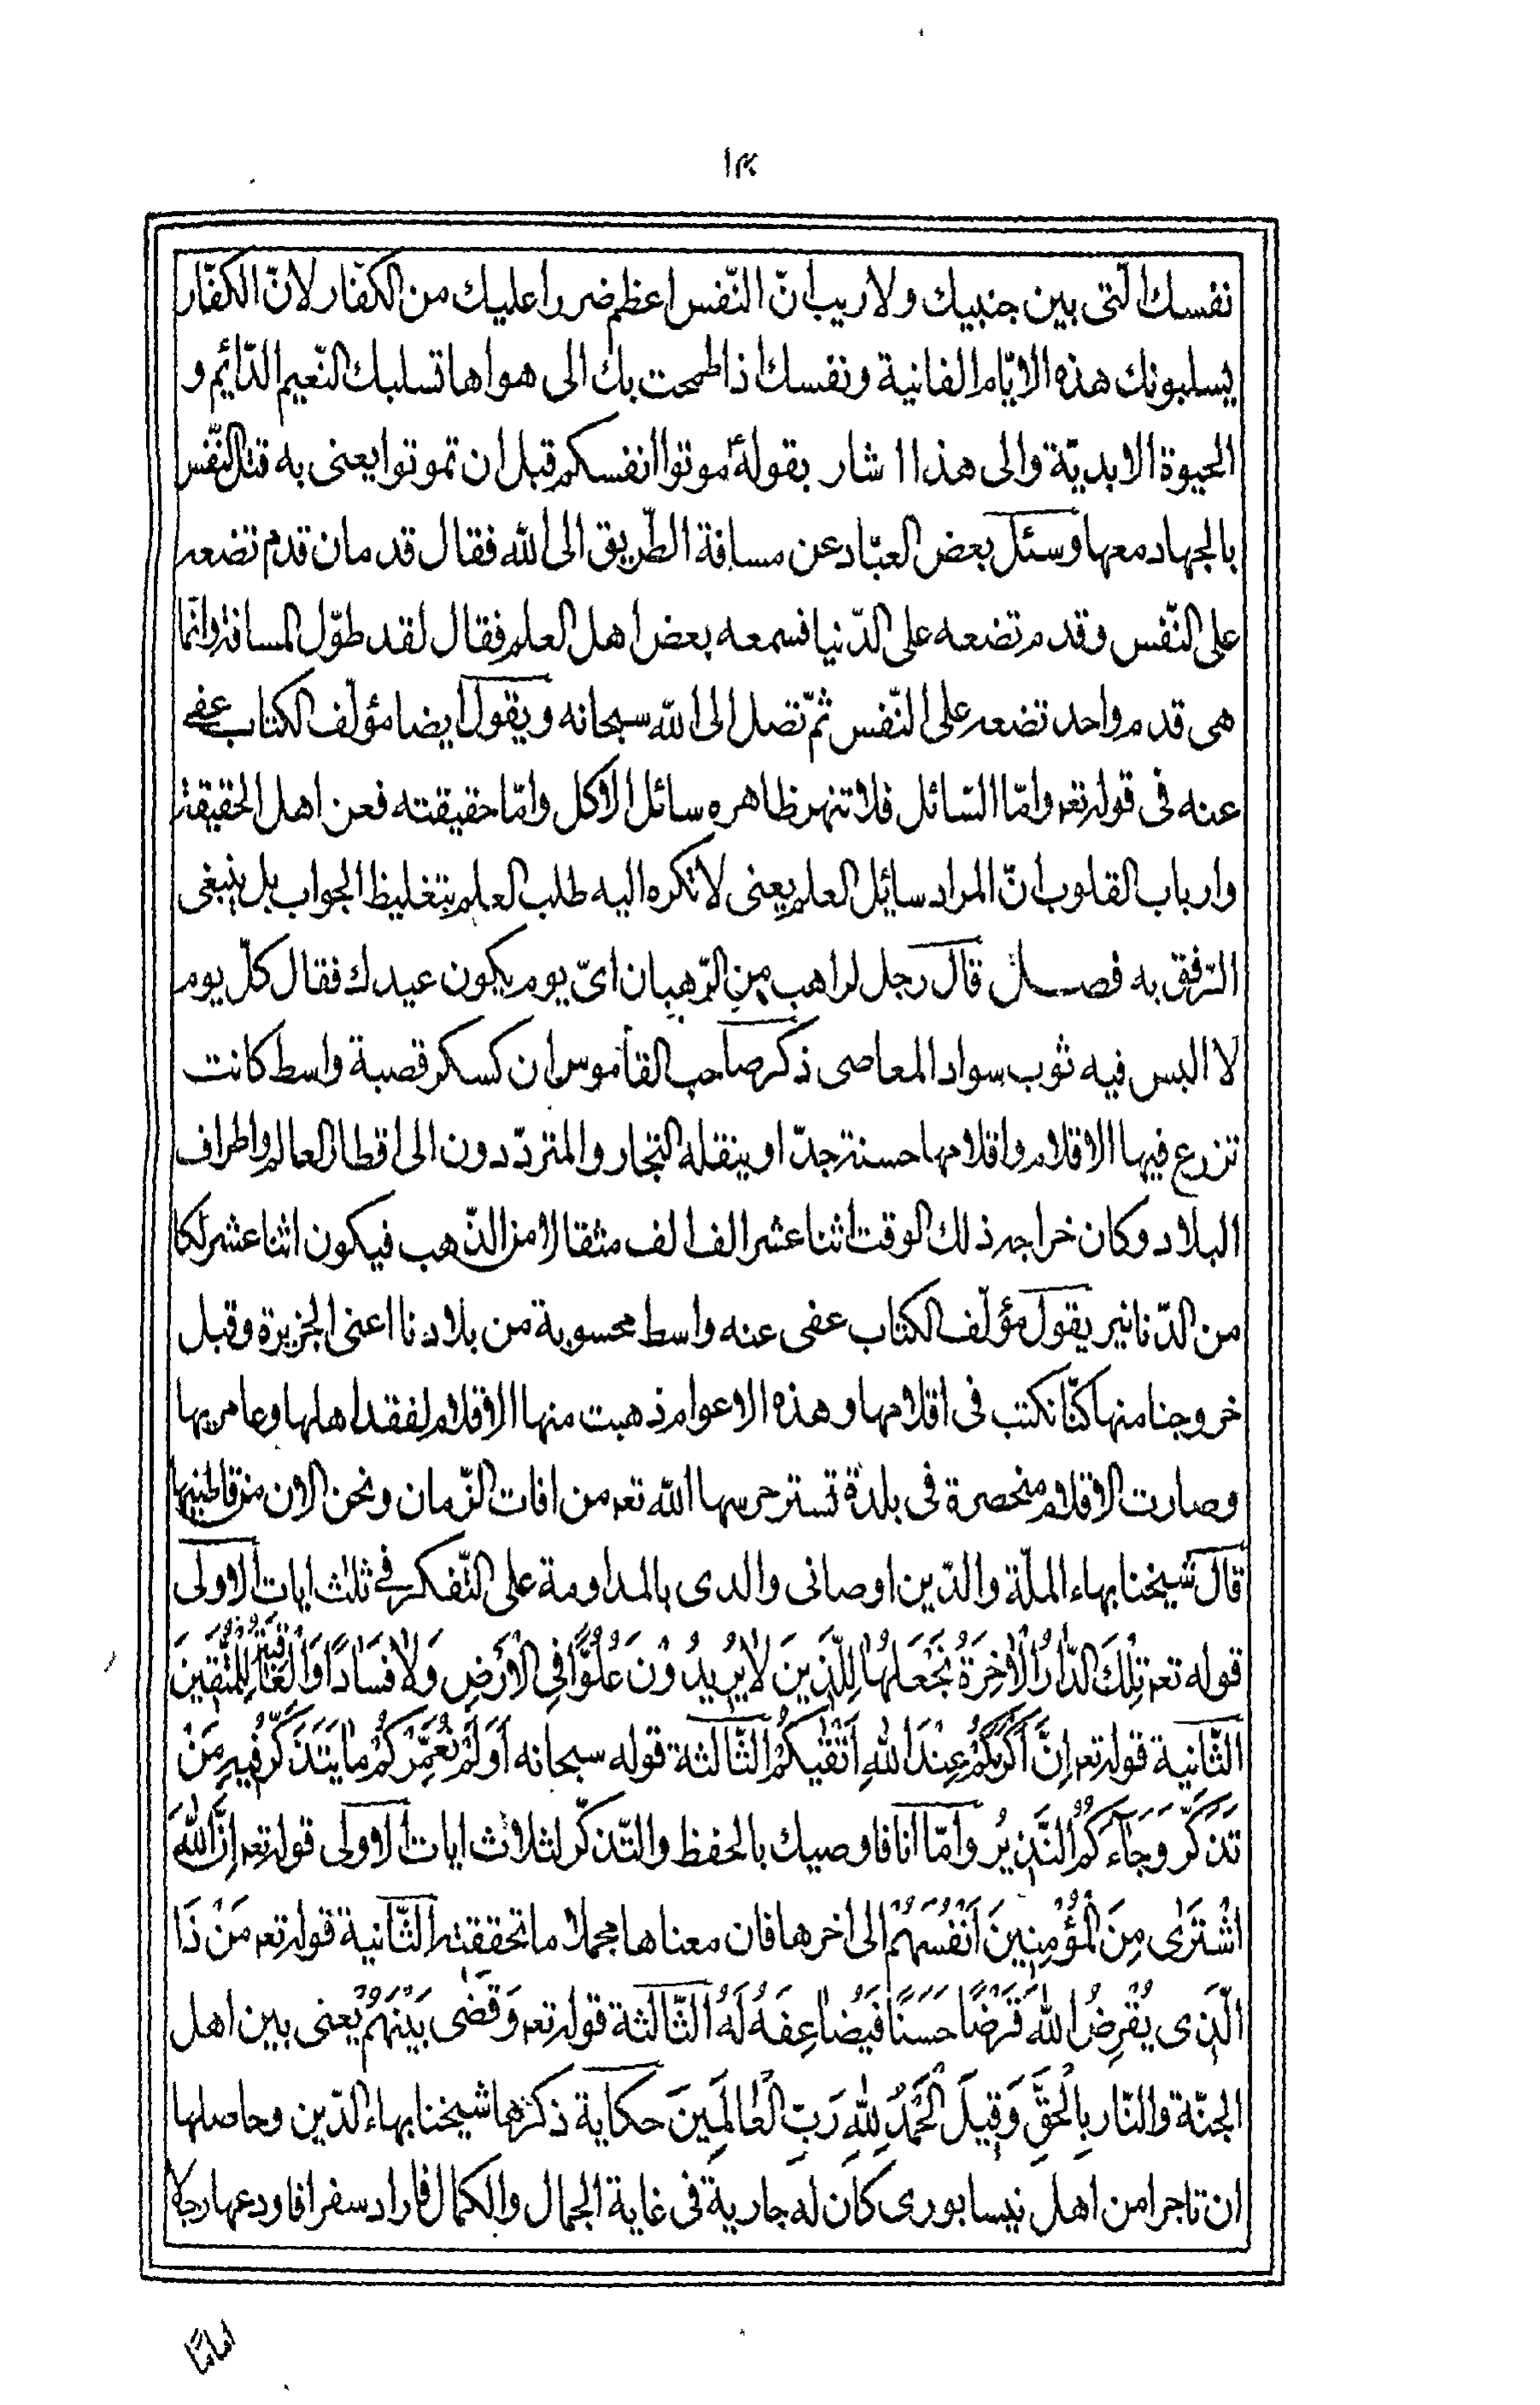 ١٣
نفسك الّتى بين جنبيك ولا ريب انّ النّفس اعظم ضررا عليك من الكفّار لانّ الكفّار
يسلبونك هذه الايّام الفانية ونفسك اذا طمحت بك الى هواها تسلبك النّعيم الدّائم و
الحيوة الابديّة والى هذا اشار بقوله موتوا انفسكم قبل ان تموتوا يعنى به قتل النّفس
بالجهاد معها وسئل بعض العبّاد عن مسافة الطّريق الى الله فقال قدمان قدم تضعه
على النّفس وقدم تضعه على الدّنيا فسمعه بعض اهل العلم فقال لقد طوّل المسافة وانّما
هى قدم واحد تضعه على النّفس ثمّ تصل الى الله سبحانه ويقول ايضا مؤلّف الكتاب عفى
عنه فى قوله تعه وامّا السّائل فلا تنهر ظاهره سائل الاكل وامّا حقيقته فعن اهل الحقيقة
وارباب القلوب انّ المراد سايل العلم يعنى لا تكره اليه طلب العلم بتغليظ الجواب بل ينبغى
الرّفق به فصل قال رجل لراهب من الرّهبان اىّ يوم يكون عيدك فقال كلّ يوم
لا البس فيه ثوب سواد المعاصى ذكر صاحب القاموس ان كسكر قصبة واسط كانت
تزرع فيها الاقلام واقلامها حسنة جدّا وينقله التجار والمتردّدون الى اقطار العالم واطراف
البلاد وكان خراجه ذلك الوقت اثنا عشر الف الف مثقالا من الذّهب فيكون اثنا عشر لكا
من الدّنانير يقول مؤلّف الكتاب عفى عنه واسط محسوبة من بلادنا اعنى الجزيرة وقبل
خروجنا منها كنّا نكتب فى اقلامها وهذه الاعوام ذهبت منها الاقلام لفقد اهلها وعامريها
وصارت الاقلام منحصرة فى بلدة تستر حرسها الله تعه من افات الزّمان ونحن الان من قاطنيها
قال شيخنا بهاء الملّة والدّين اوصانى والدى بالمداومة على التّفكر فى ثلث ايات الاولى
قوله تعه تِلْكَ الدَّارُ الْآخِرَةُ نَجْعَلُهَا لِلَّذِينَ لَا يُرِيدُونَ عُلُوًّا فِي الْأَرْضِ وَلَا فَسَادًا وَالْعَاقِبَةُ لِلْمُتَّقِينَ
الثّانية قوله تعه اِنَّ اَكْرَمَكُمْ عِنْدَ اللهِ اَتْقٰيكُمْ الثّالثة قوله سبحانه اَوَلَمْ نُعَمِّرْكُمْ مَا يَتَذَكَّرُ فِيهِ مَنْ
تَذَكَّرَ وَجَآءَكُمُ النَّذِيرُ وامّا انا فاوصيك بالحفظ والتّذكّر لثلاث ايات الاولى قوله تعه اِنَّ اللهَ
اشْتَرٰى مِنَ الْمُؤْمِنِينَ اَنْفُسَهُمْ الى اخرها فان معناها مجملا ما تحققته الثّانية قوله تعه مَنْ ذَا
الَّذِى يُقْرِضُ اللهَ قَرْضًا حَسَنًا فَيُضَاعِفَهُ لَهُ الثّالثة قوله تعه وَقُضِىَ بَيْنَهُمْ يعنى بين اهل
الجنّة والنّار بِالْحَقِّ وَقِيلَ الْحَمْدُ لِلّٰهِ رَبِّ الْعَالَمِينَ حكاية ذكرها شيخنا بهاء الدّين وحاصلها
ان تاجرا من اهل نيسابورى كان له جارية فى غاية الجمال والكمال فاراد سفرا فاودعها رجلا